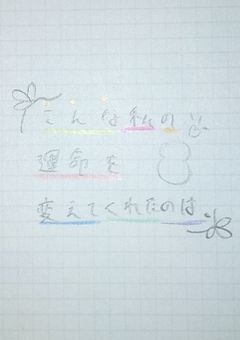 こんな私の
運命を
変えてくれたのは